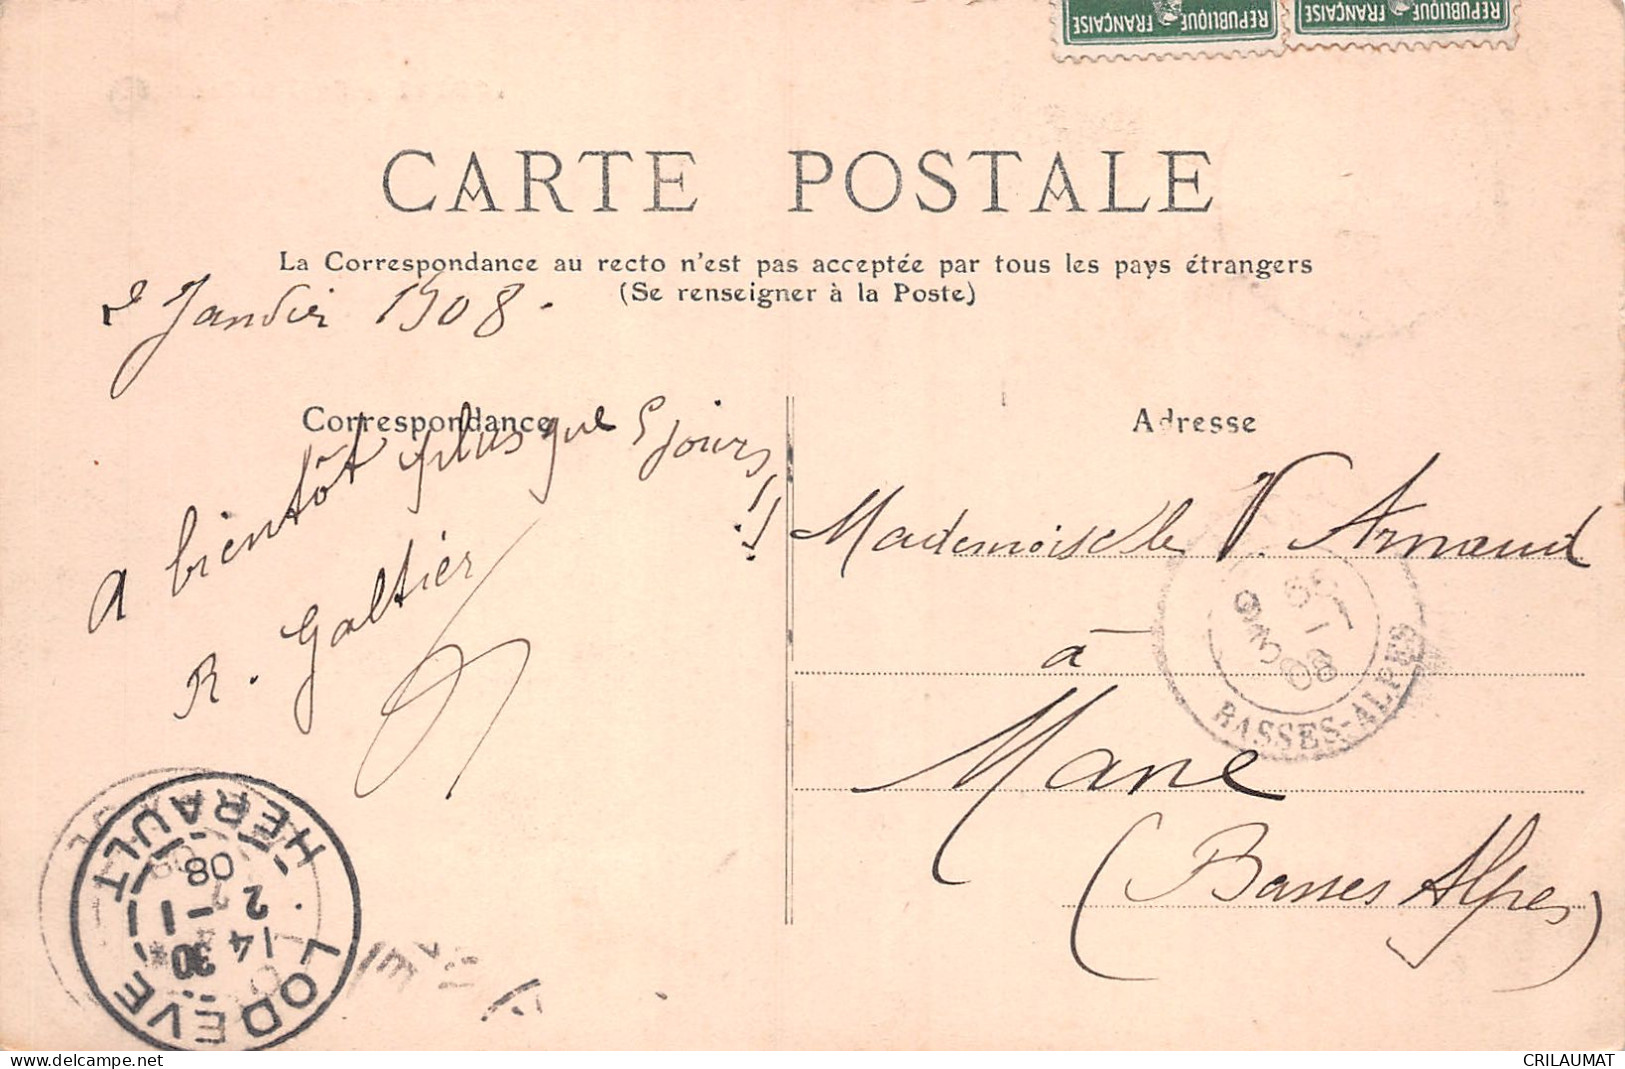 REPUBLIQUE FRANÇAISE
REPUBLIQUE FRANÇAISE
CARTE POSTALE
La Correspondance au recto n'est pas acceptée par tous les pays étrangers
(Se renseigner à la Poste)
2 Janvier 1908.
Correspondance
Adresse
a bientôt plus que 5 jours !!
R. Galtier
Mademoiselle V. Arnaud
à
Mane
(Basses Alpes)
BASSES-ALPES
08
LODEVE
HERAULT
14 30
2 - 1
08
www.delcampe.net
CRILAUMAT